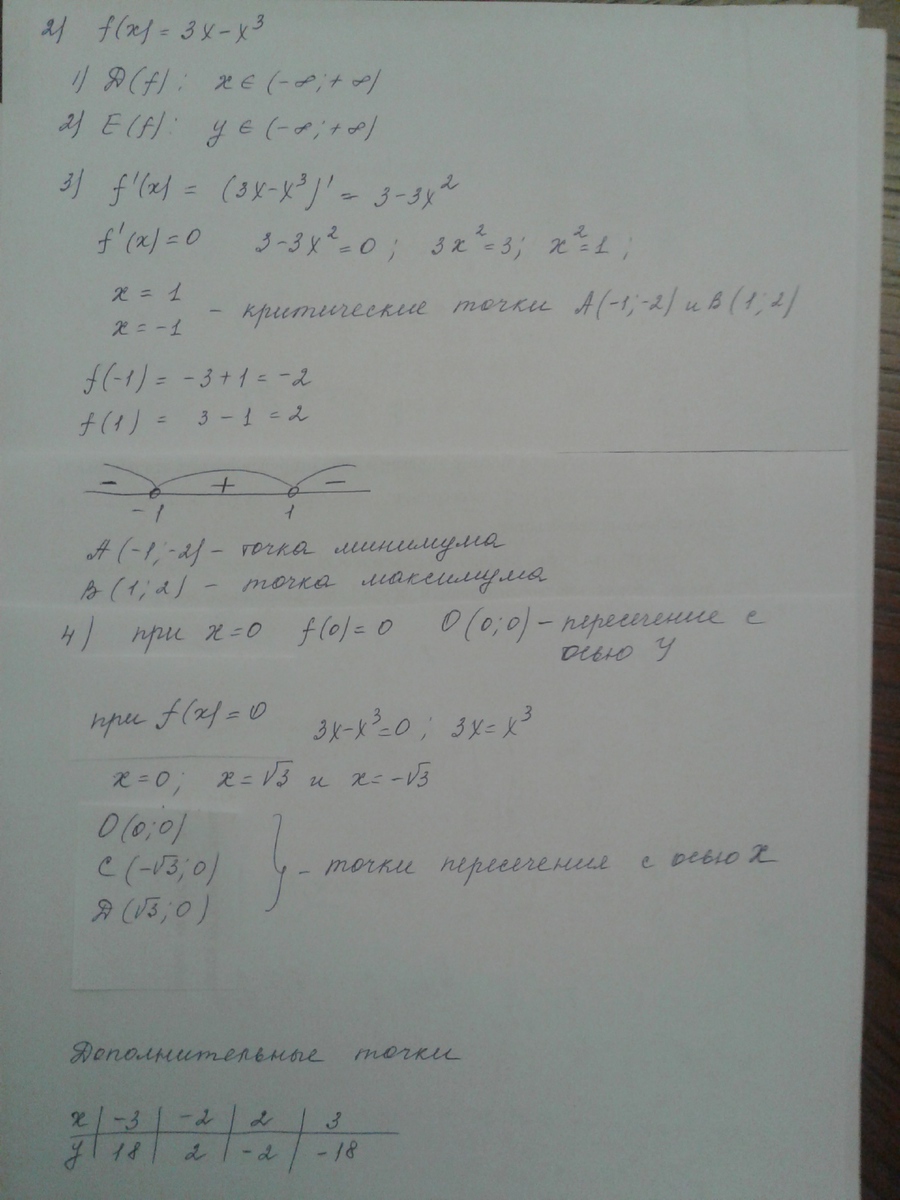 2) f(x) = 3x - x³
1) D(f): x ∈ (-∞; +∞)
2) E(f): y ∈ (-∞; +∞)
3) f'(x) = (3x-x³)' = 3-3x²
f'(x)=0 3-3x²=0; 3x²=3; x²=1;
x = 1
x = -1 - критические точки A(-1;-2) и B(1;2)
f(-1) = -3+1 = -2
f(1) = 3 - 1 = 2
- + -
-1 1
A(-1;-2) - точка минимума
B(1;2) - точка максимума
4) при x=0 f(0)=0 O(0;0) - пересечение с
осью y
при f(x)=0 3x-x³=0; 3x=x³
x=0; x=√3 и x=-√3
O(0;0)
C(-√3;0) - точки пересечение с осью x
Д(√3;0)
Дополнительные точки
x | -3 | -2 | 2 | 3
y | 18 | 2 | -2 | -18